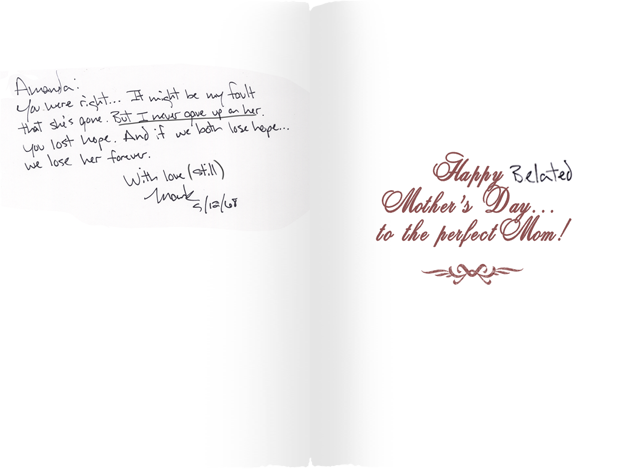 Amanda:
You were right... It might be my fault
that she's gone. But I never gave up on her.
You lost hope. And if we both lose hope...
we lose her forever.
With love (still)
Mark
5/12/68
Happy Belated
Mother's Day...
to the perfect Mom!